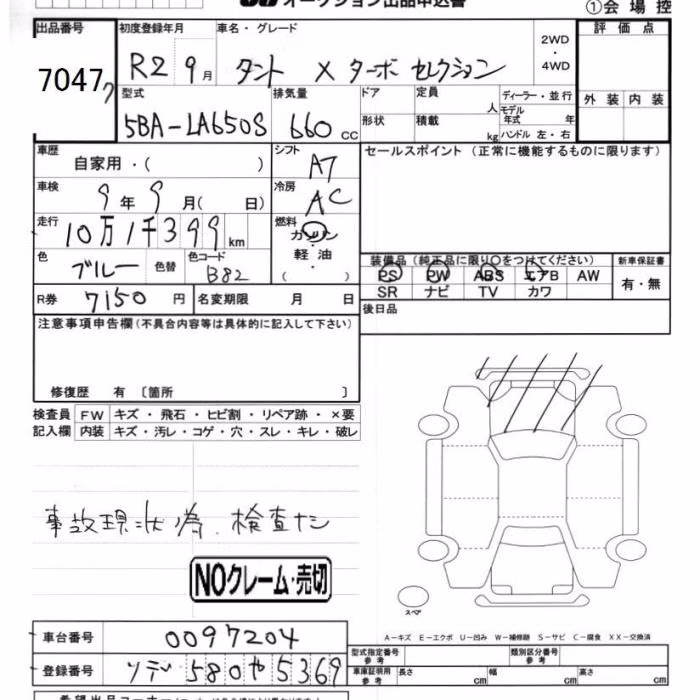 オークション出品申込書
①会場控
出品番号 初度登録年月 車名・グレード 評価点
7047 R2 9月 タント X ターボ セレクション 2WD・4WD
型式 排気量 ドア 定員 人 ディーラー・並行 外装 内装
5BA-LA650S 660cc 形状 積載 kg モデル年式 年
ハンドル 左・右
車歴 自家用・( ) シフト AT セールスポイント(正常に機能するものに限ります)
車検 9年9月( 日) 冷房 AC
走行 10万1千399km 燃料 ガソリン・軽油・( )
色 ブルー 色替 色コード B82
装備品(純正品に限り○をつけてください) 新車保証書
PS PW ABS エアB AW 有・無
SR ナビ TV カワ
R券 7150円 名変期限 月 日 後日品
注意事項申告欄(不具合内容等は具体的に記入して下さい)
修復歴 有〔箇所 〕
検査員 FW キズ・飛石・ヒビ割・リペア跡・×要
記入欄 内装 キズ・汚レ・コゲ・穴・スレ・キレ・破レ
事故現状為、検査ナシ
NOクレーム・売切
スペア
A-キズ E-エクボ U-凹み W-補修跡 S-サビ C-腐食 XX-交換済
車台番号 0097204
登録番号 580 や 5369
型式指定番号 参考 類別区分番号 参考
車庫証明用 参考 長さ cm 幅 cm 高さ cm